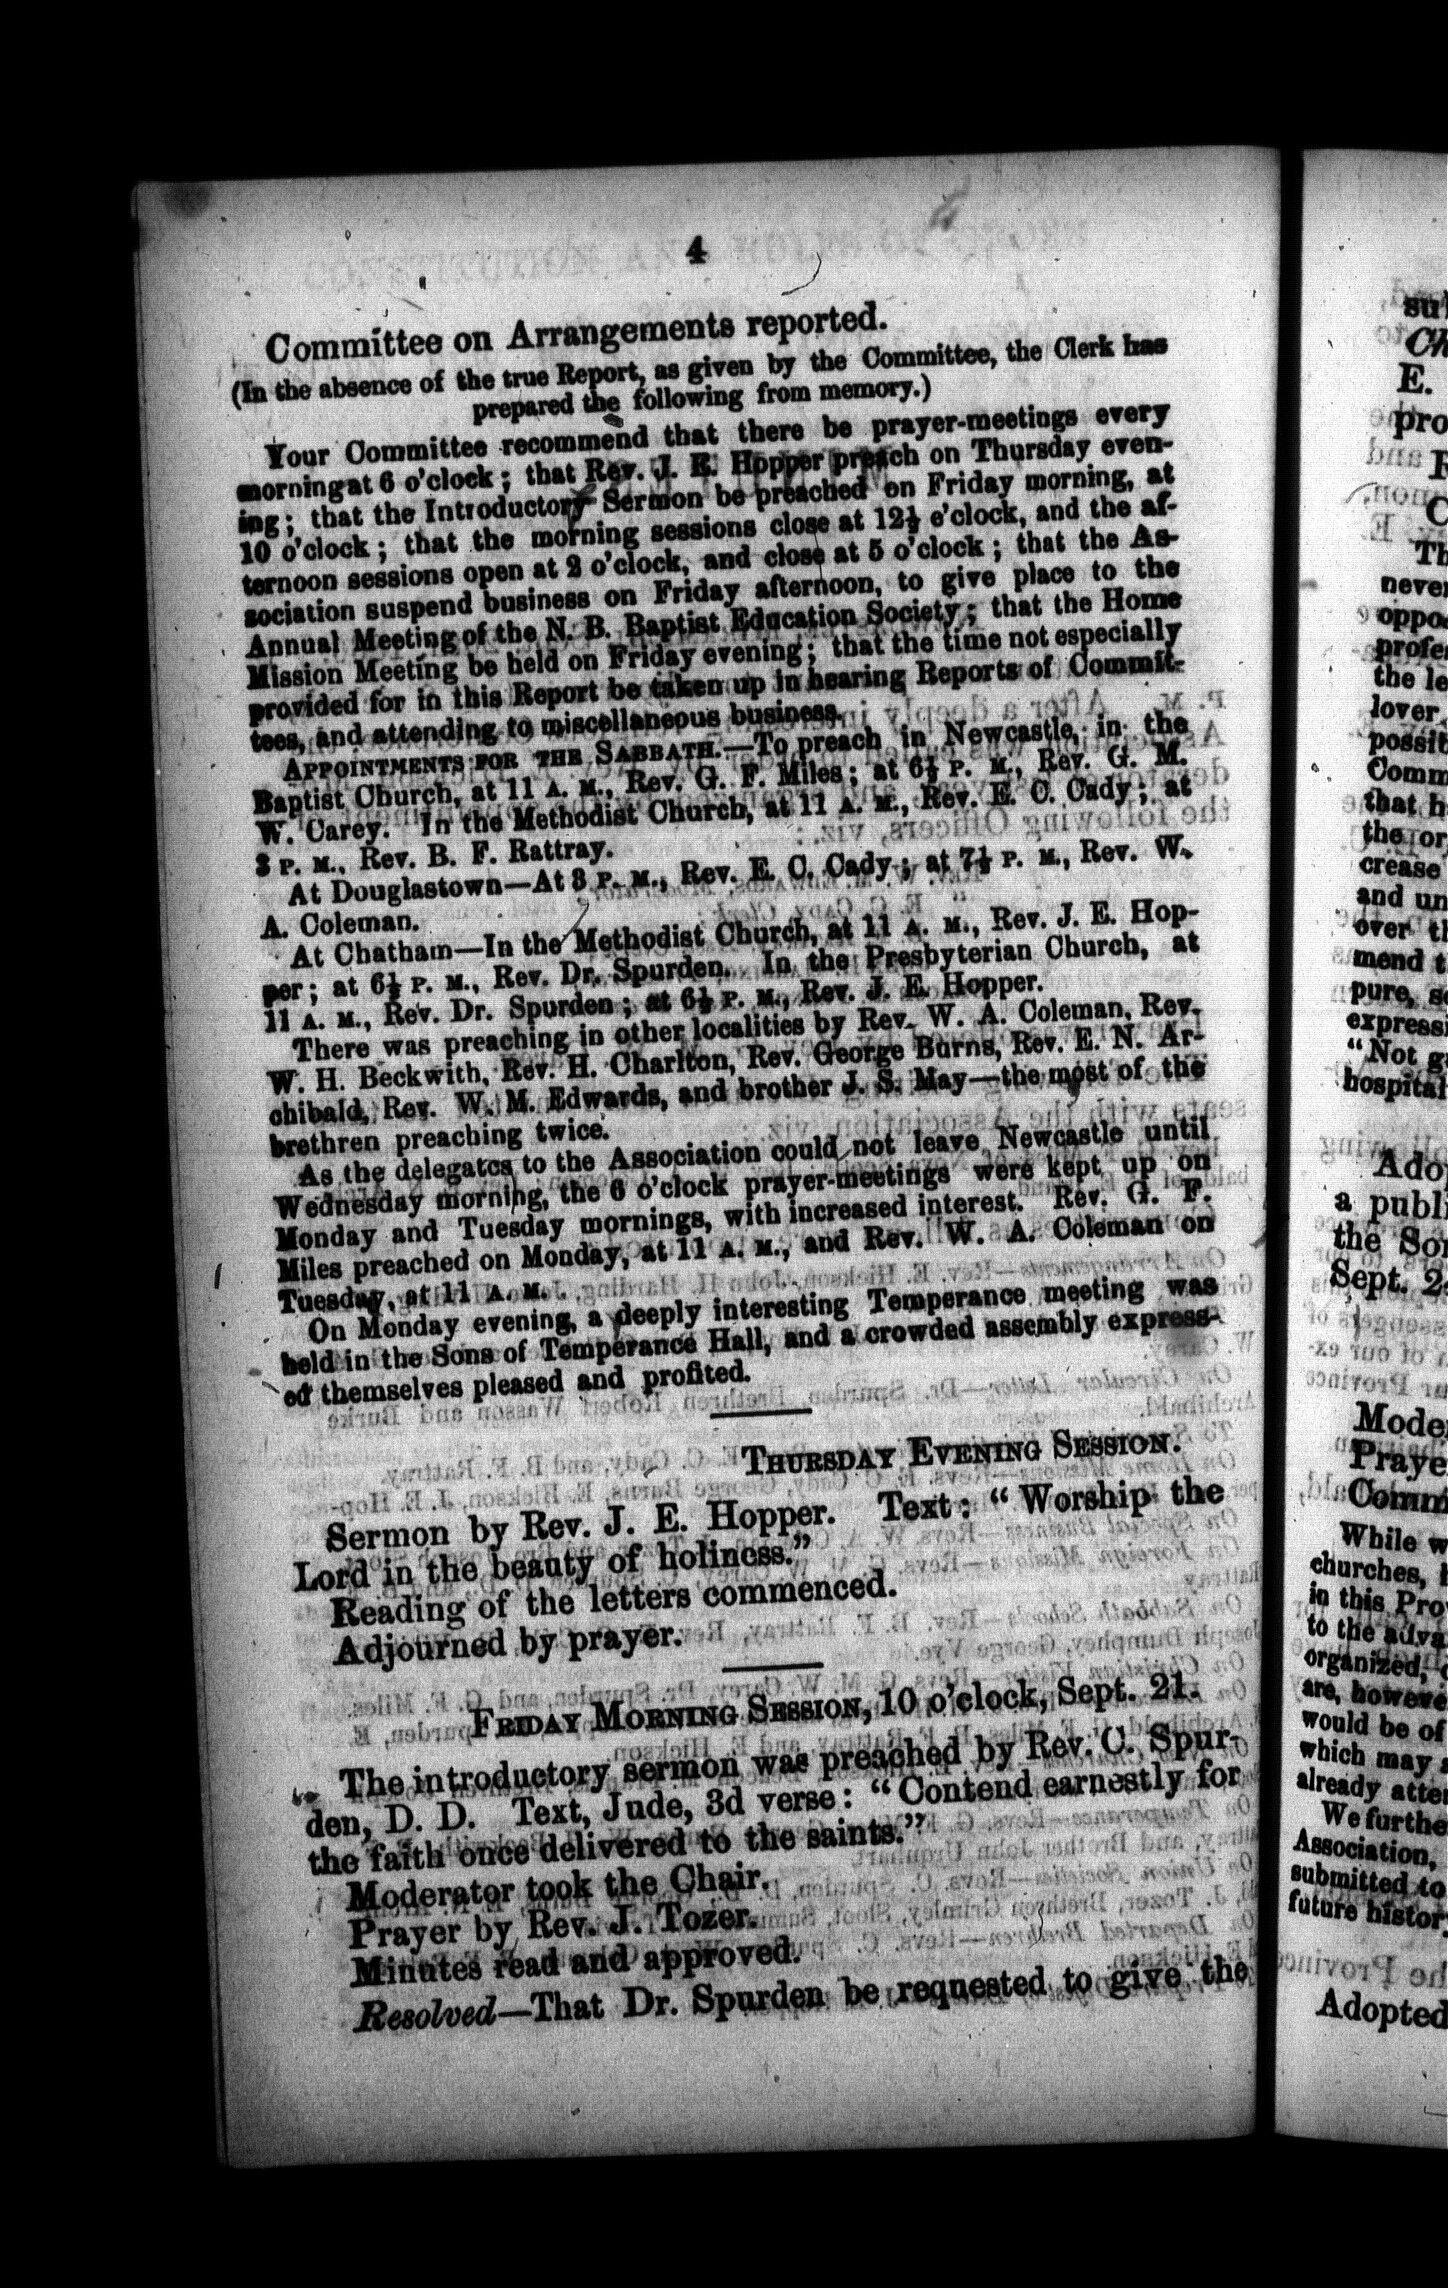 4
Committee on Arrangements reported.
(In the absence of the true Report, as given by the Committee, the Clerk has
prepared the following from memory.)
Your Committee recommend that there be prayer-meetings every
morning at 6 o'clock; that Rev. J. E. Hopper preach on Thursday even-
ing; that the Introductory Sermon be preached on Friday morning, at
10 o'clock; that the morning sessions close at 12½ o'clock, and the af-
ternoon sessions open at 2 o'clock, and close at 5 o'clock; that the As-
sociation suspend business on Friday afternoon, to give place to the
Annual Meeting of the N. B. Baptist Education Society; that the Home
Mission Meeting be held on Friday evening; that the time not especially
provided for in this Report be taken up in hearing Reports of Commit-
tees, and attending to miscellaneous business.
APPOINTMENTS FOR THE SABBATH.—To preach in Newcastle, in the
Baptist Church, at 11 A. M., Rev. G. F. Miles; at 6½ P. M., Rev. G. M.
W. Carey. In the Methodist Church, at 11 A. M., Rev. E. C. Cady; at
3 P. M., Rev. B. F. Rattray.
At Douglastown—At 3 P. M., Rev. E. C. Cady; at 7½ P. M., Rev. W.
A. Coleman.
At Chatham—In the Methodist Church, at 11 A. M., Rev. J. E. Hop-
per; at 6½ P. M., Rev. Dr. Spurden. In the Presbyterian Church, at
11 A. M., Rev. Dr. Spurden; at 6½ P. M., Rev. J. E. Hopper.
There was preaching in other localities by Rev. W. A. Coleman, Rev.
W. H. Beckwith, Rev. H. Charlton, Rev. George Burns, Rev. E. N. Ar-
chibald, Rev. W. M. Edwards, and brother J. S. May—the most of the
brethren preaching twice.
As the delegates to the Association could not leave Newcastle until
Wednesday morning, the 6 o'clock prayer-meetings were kept up on
Monday and Tuesday mornings, with increased interest. Rev. G. F.
Miles preached on Monday, at 11 A. M., and Rev. W. A. Coleman on
Tuesday, at 11 A. M.
On Monday evening, a deeply interesting Temperance meeting was
held in the Sons of Temperance Hall, and a crowded assembly express-
ed themselves pleased and profited.
THURSDAY EVENING SESSION.
Sermon by Rev. J. E. Hopper. Text: "Worship the
Lord in the beauty of holiness."
Reading of the letters commenced.
Adjourned by prayer.
FRIDAY MORNING SESSION, 10 o'clock, Sept. 21.
The introductory sermon was preached by Rev. C. Spur-
den, D. D. Text, Jude, 3d verse: "Contend earnestly for
the faith once delivered to the saints."
Moderator took the Chair.
Prayer by Rev. J. Tozer.
Minutes read and approved.
Resolved—That Dr. Spurden be requested to give the